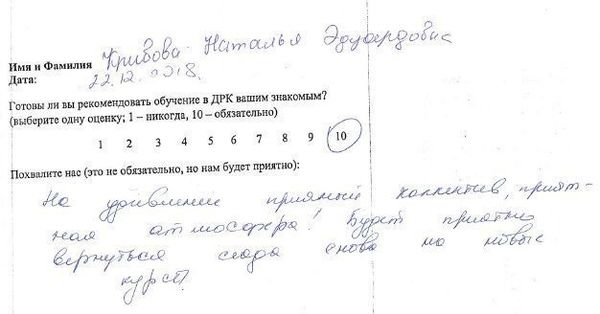 Имя и Фамилия Кривова Наталья Эдуардовна
Дата: 22.12.2018.
Готовы ли вы рекомендовать обучение в ДРК вашим знакомым?
(выберите одну оценку; 1 – никогда, 10 – обязательно)
1 2 3 4 5 6 7 8 9 10
Похвалите нас (это не обязательно, но нам будет приятно):
На удивление приятный коллектив, прият-
ная атмосфера! Будет приятно
вернуться сюда снова на новые
курсы